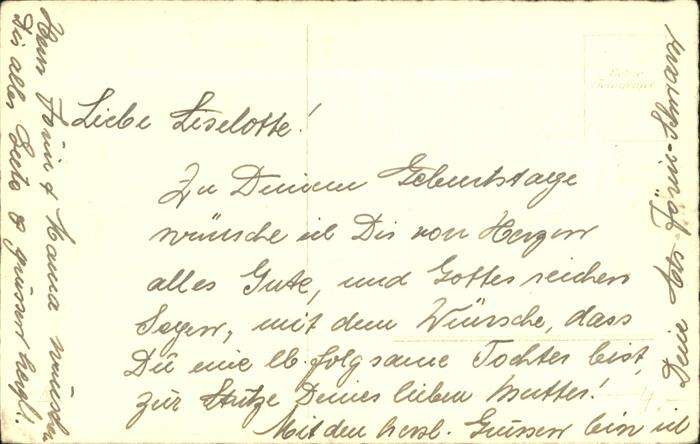 Liebe Liselotte!
Zu Deinem Geburtstage
wünsche ich Dir von Herzen
alles Gute, und Gottes reichen
Segen, mit dem Wünsche, dass
Du eine lb. folgsame Tochter bist,
zur Stütze Deiner lieben Mutter!
Mit den herzl. Grüssen bin ich
Deine
Herr & Mama wünschen
Dir alles Beste & grüssen herzl.!